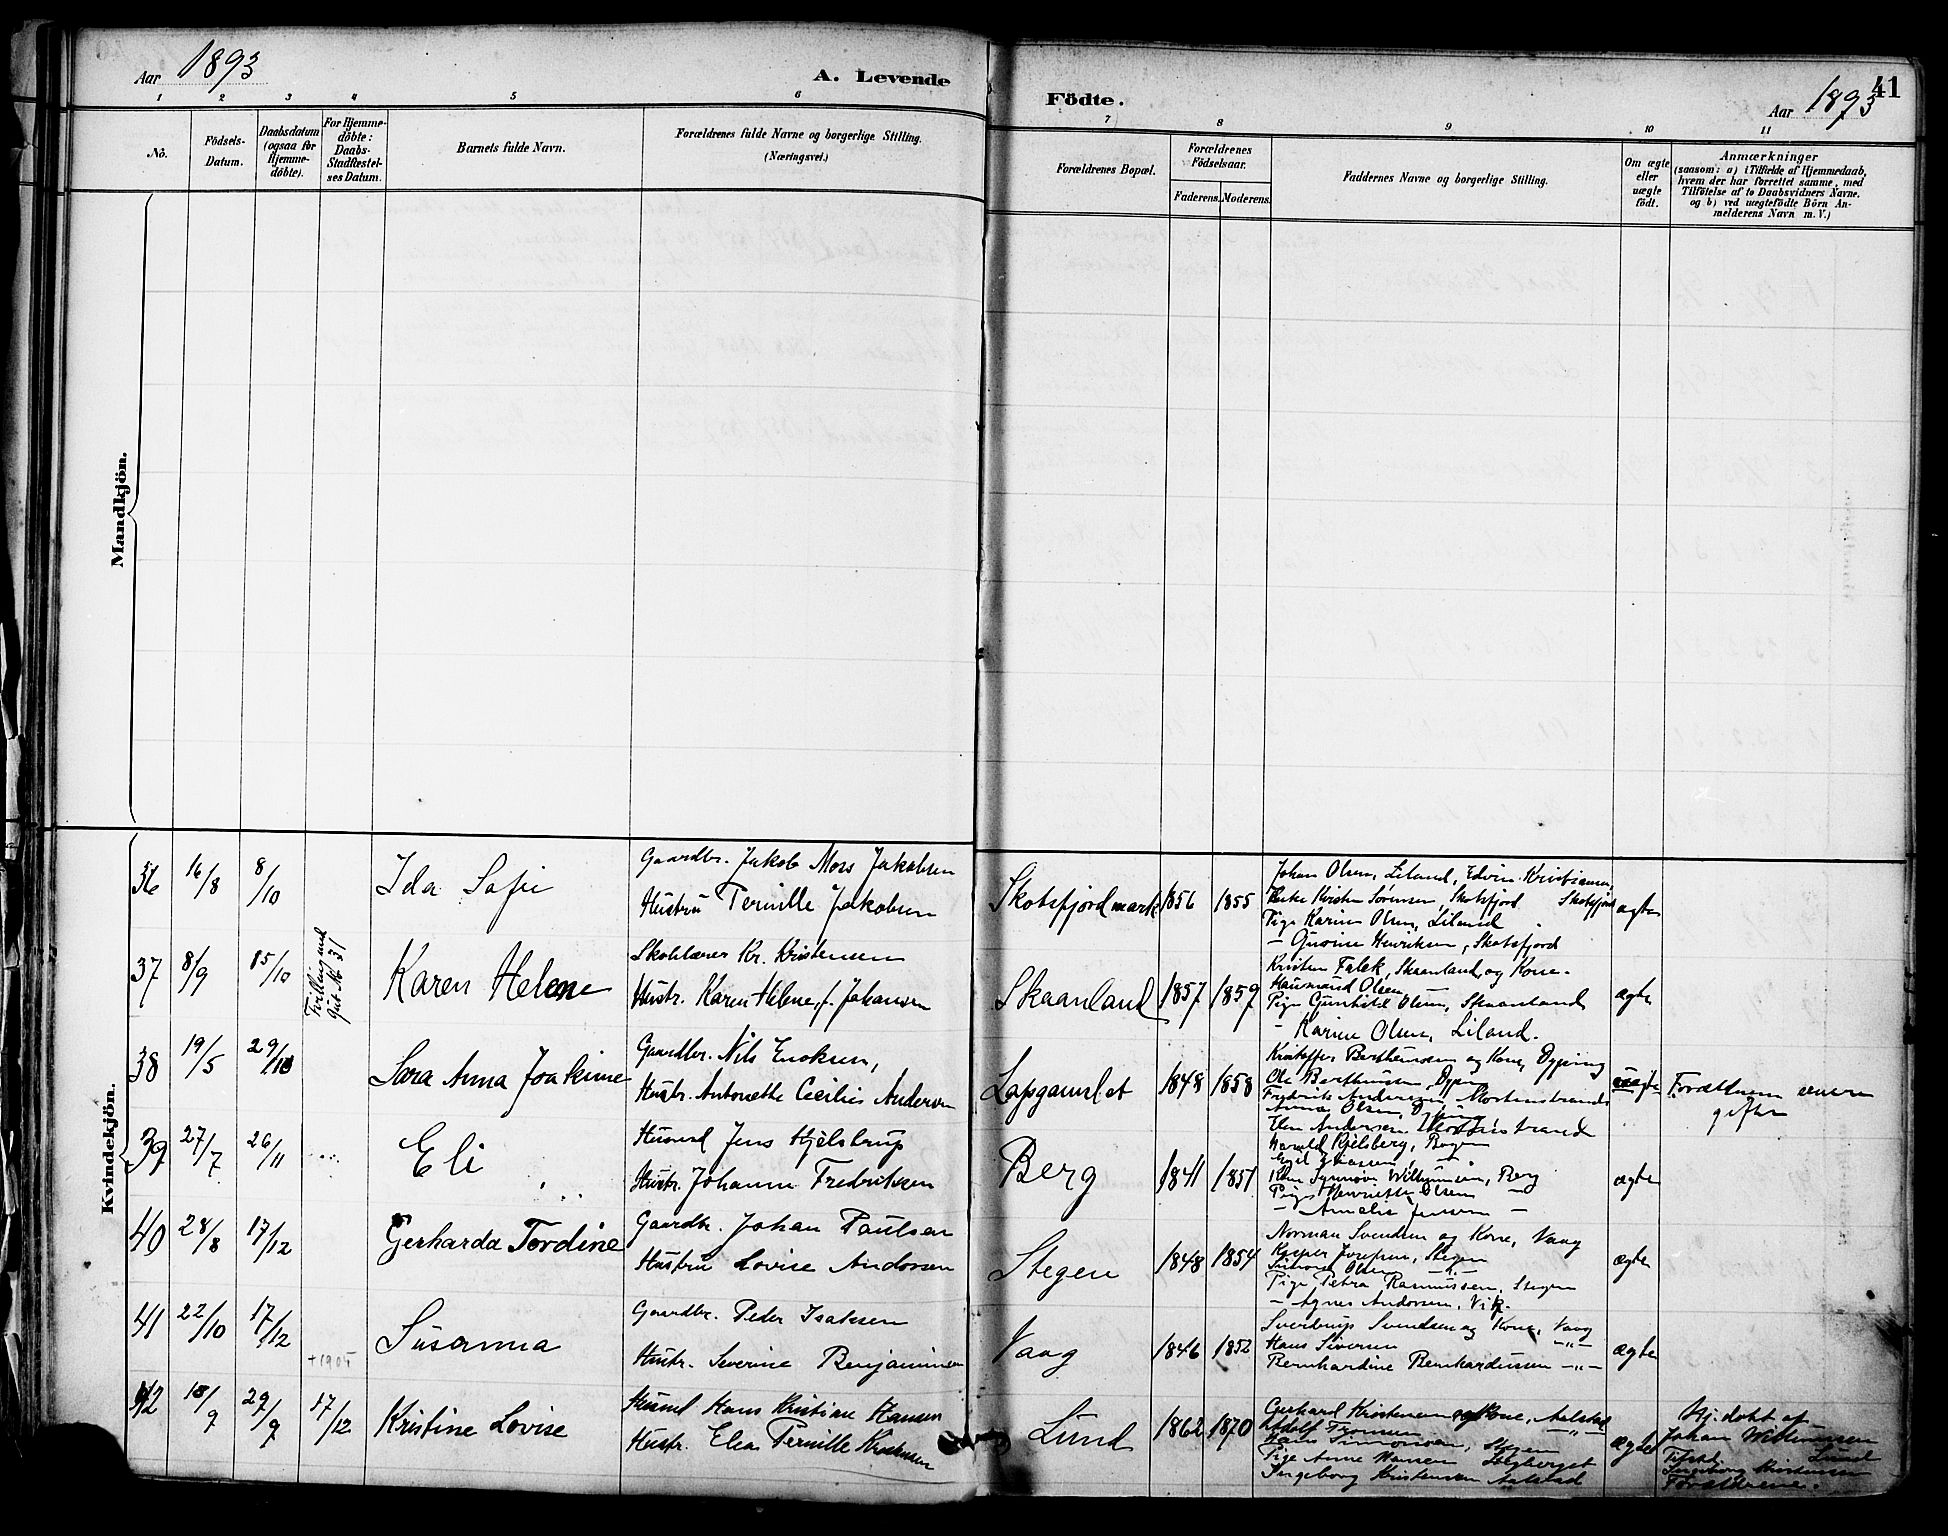 Aar 1893
A. Levende
Födte.
Aar 1893
41
1 2 3 4 5 6 7 8 9 10 11
No.
Födsels-
Datum.
Daabsdatum
(ogsaa for
Hjemme-
döbte).
For Hjemme-
döbte:
Daabs-
Stadfæstel-
ses Datum.
Barnets fulde Navn.
Forældrenes fulde Navne og borgerlige Stilling.
(Næringsvei.)
Forældrenes Bopæl.
Forældrenes
Födselsaar.
Faderens. Moderens.
Faddernes Navne og borgerlige Stilling.
Om ægte
eller
uægte
födt.
Anmærkninger
(saasom: a) i Tilfælde af Hjemmedaab,
hvem der har forrettet samme, med
Tilföielse af to Daabsvidners Navne.
og b) ved uægtefödte Börn An-
melderens Navn m. V.)
Mandkjön.
Kvindekjön.
36 16/8 8/10 Ida Sofie
Gaardbr. Jakob Mors Jakobsen
Hustru Pernille Jakobsen
Skotsfjordmark 1856 1855
Johan Olsen, Liland, Edvin Kristiansen,
Enke Kirsten Sørensen, Skotsfjord Skotsfjord
Pige Karine Olsen, Liland
— Henriksen, Skotsfjord
ægte
37 8/9 15/10
Tvilling med
No 31
Karen Helene
Skolelærer Kr. Kristensen
Hustr. Karen Helene, f. Johansen
Skaanland 1857 1859
Kristen Falck, Skaanland, og Kone.
Olsen —
Pige Gunhild Olsen, Skaanland
— Karine Olsen, Liland.
ægte
38 19/5 29/10 Sara Anna Joakime
Gaardbr. Nils Enoksen,
Hustr. Antonethe Cecilie Andersen
Lapgamlet 1848 1858
Kristoffer Bertheussen og Kone, Dyping
Ole Bertheussen, Dyping
Fredrik Andersen, Mortenstrand
Anna Olsen, Dyping
Elen Andersen, Mortenstrand
uægte
Forældrene senere
gifte
39 27/7 26/11 Eli
Husmd Jens Hjelstrup
Hustr. Johanne Fredriksen
Berg 1841 1851
Harald Kjelsberg, Bogen
Wilhelmsen, Berg
Pige Henriette Olsen —
— Amalie Jensen —
ægte
40 28/8 17/12 Gerharda Tordine
Gaardbr. Johan Paulsen
Hustru Lovise Andersen
Stegen 1848 1854
Norman Svendsen og Kone, Vaag
Kasper Josefsen, Stegen
Simon Olsen —"—
Pige Petra Rasmussen, Stegen
— Agnes Andersen, Vik.
ægte
41 22/10 17/12
+1905
Susanna
Gaardbr. Peder Isaksen
Hustr. Severine Benjaminsen
Vaag 1846 1852
Sverdrup Svendsen og Kone, Vaag
Hans Sivertsen —"—
Bernhardine Bernhardussen —"—
ægte
42 18/9 29/9 17/12 Kristine Lovise
Husmd Hans Kristian Hansen
Hustr. Elea Pernille Kristensen
Lund 1862 1870
Gerhard Kristensen og Kone, Aalstad
Adolf Fransen —"—
Hans Simonsen, Stegen
Pige Anne Hansen
Ingeborg Kristensen Aalstad
ægte
Hj. döbt af
Johan Wilhelmsen
Lund
Ingeborg Kristensen
Forældrene.